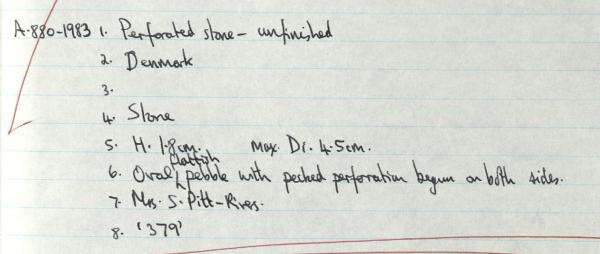 A.880-1983 1. Perforated stone - unfinished
2. Denmark
3.
4. Stone
5. H. 1.8cm. Max. Di. 4.5cm.
6. Oval flattish pebble with pecked perforation begun on both sides.
7. Mrs. S. Pitt-Rivers.
8. '379'